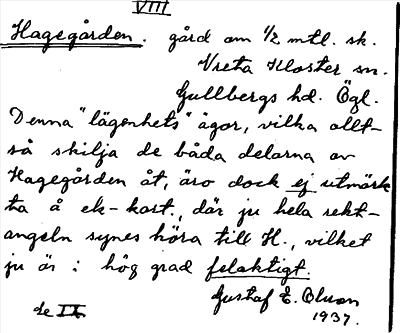 VIII
Hagegården. gård om 1/2 mtl. sk.
Vreta Kloster sn.
Gullbergs hd. Ögl.
Denna "lägenhets" ägor, vilka allt-
så skilja de båda delarna av
Hagegården åt, äro dock ej utmärk
ta å ek-kart., där ju hela rekt-
angeln synes höra till H., vilket
ju är i hög grad felaktigt.
Gustaf E. Olson
de IX
1937.